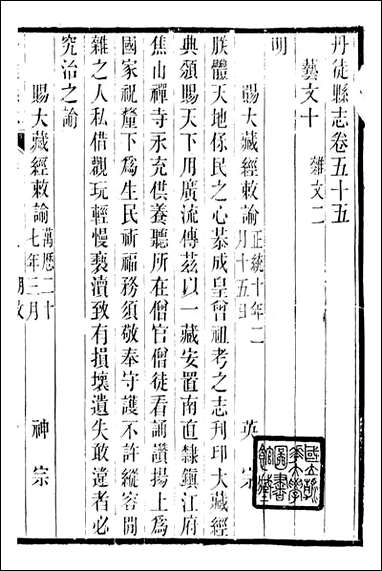 丹徒縣志卷五十五
藝文十 雜文二
明
賜大藏經敕諭 正統十年二月十五日 英宗
朕體天地保民之心恭成皇曾祖考之志刋印大藏經
典頒賜天下用廣流傳茲以一藏安置南直隸鎮江府
焦山禪寺永充供養聽所在僧官僧徒看誦讚揚上爲
國家祝釐下爲生民祈福務須敬奉守護不許縱容閒
雜之人私借觀玩輕慢褻瀆致有損壞遺失敢違者必
究治之諭
賜大藏經敕諭 萬歷二十七年三月 神宗